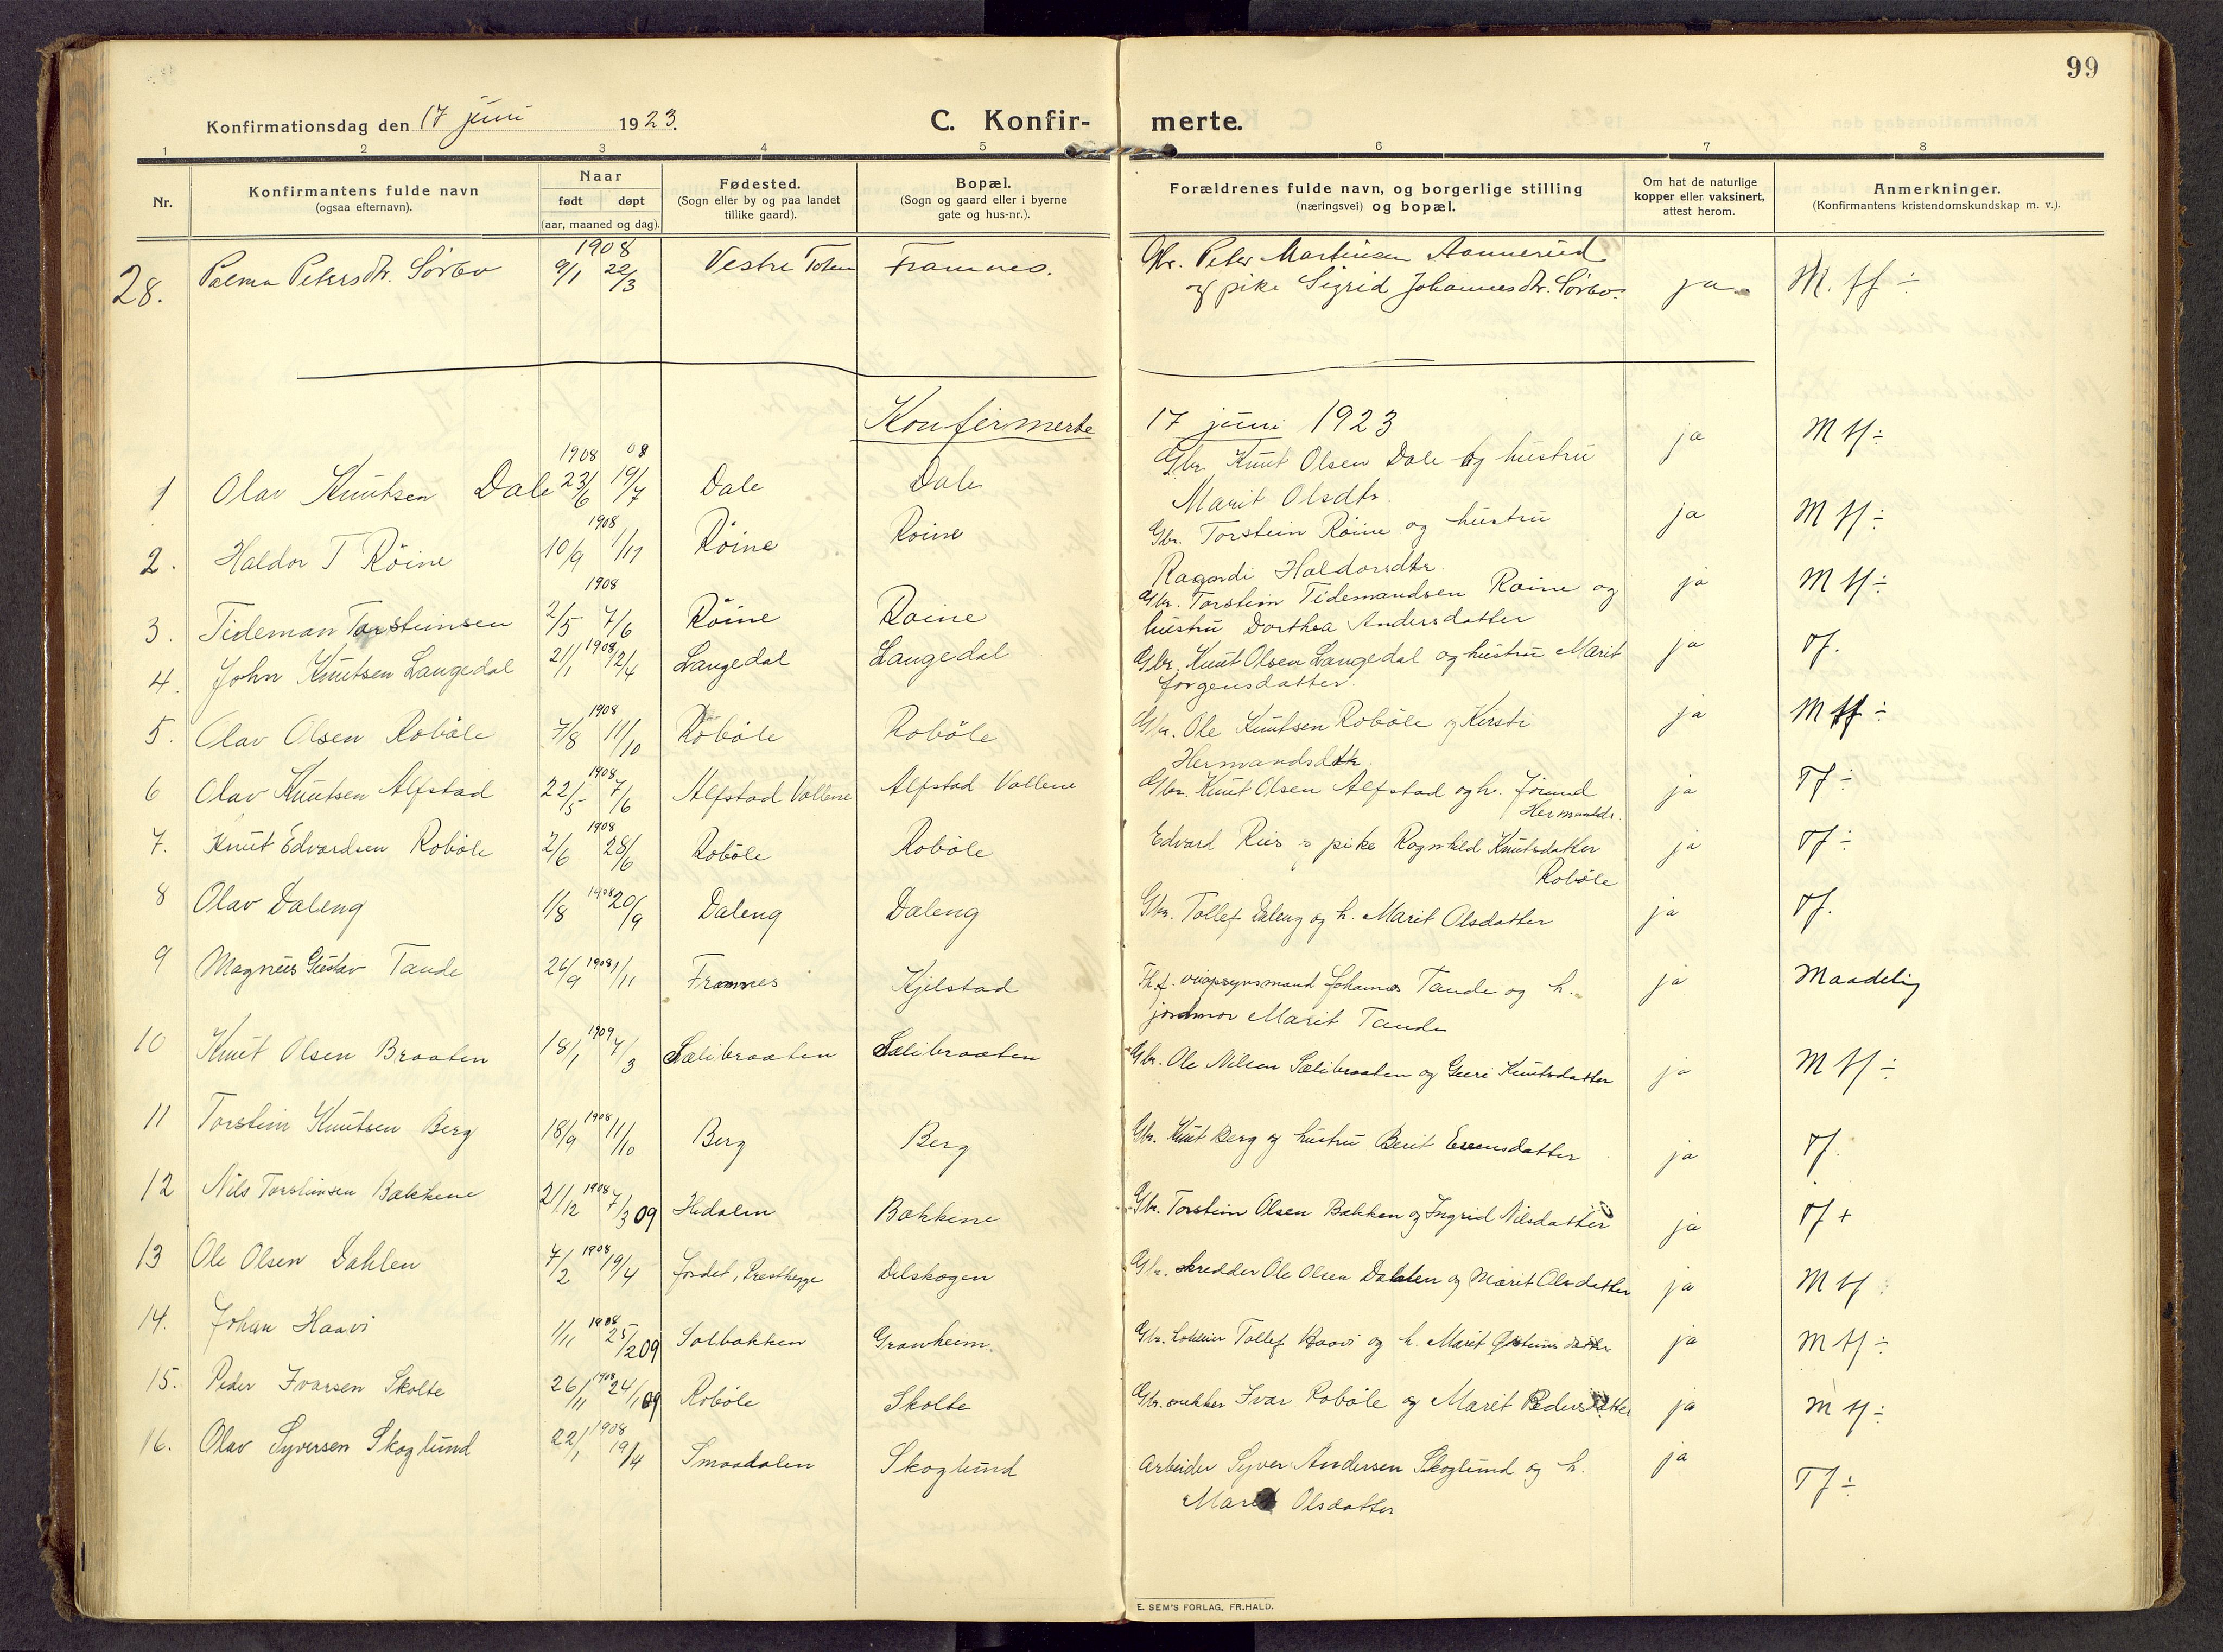 99
Konfirmationsdag den 17 juni 1923.
C. Konfir- merte.
1 2 3 4 5 6 7 8
Nr.
Konfirmantens fulde navn
(ogsaa efternavn).
Naar
født døpt
(aar, maaned og dag).
Fødested.
(Sogn eller by og paa landet
tillike gaard).
Bopæl.
(Sogn og gaard eller i byerne
gate og hus-nr.).
Forældrenes fulde navn, og borgerlige stilling
(næringsvei) og bopæl.
Om hat de naturlige
kopper eller vaksinert,
attest herom.
Anmerkninger.
(Konfirmantens kristendomskundskap m. v.).
1908
28. Palma Petersdtr. Sørbo 9/1 22/3 Vestre Toten Framnes. Gbr. Peter Martinsen Aannerud ja M. tf ÷
og pike Sigrid Johannesdtr. Sørbo.
Konfirmerte 17 juni 1923
1908 08
1 Olav Knutsen Dale 23/6 19/7 Dale Dale Gbr. Knut Olsen Dale og hustru ja M tf ÷
Marit Olsdtr.
1908
2. Haldor T Röine 10/9 1/11 Röine Roine Gbr. Torstein Röine og hustru ja M tf ÷
Ragndi Haldorsdtr.
1908
3. Tideman Torsteinsen 2/5 7/6 Röine Roine Gbr. Torstein Tidemandsen Roine og ja M tf ÷
hustru Dorthea Andersdatter
1908
4. John Knutsen Langedal 21/1 12/4 Langedal Langedal Gbr. Knut Olsen Langedal og hustru Marit ja Tf.
Jørgensdatter.
1908
5. Olav Olsen Robøle 7/8 11/10 Robøle Robøle Gbr. Ole Knutsen Robøle og Kirsti ja M tf ÷
Hermandsdtr.
1908
6 Olav Knutsen Alfstad 22/5 7/6 Alfstad Vollene Alfstad Vollene Gbr. Knut Olsen Alfstad og h. Jørund ja Tf ÷
Hermundsdr.
1908
7. Knut Edvardsen Robøle 2/6 28/6 Robøle Robøle Edvard Ries og pike Ragnhild Knutsdatter ja Tf ÷
Robøle
1908
8 Olav Daleng 1/8 20/9 Daleng Daleng Gbr. Tollef Daleng og h. Marit Olsdatter ja Tf.
1908
9 Magnus Gustav Tande 26/9 1/11 Framnes Kjelstad Fh.f. veiopsynsmand Johannes Tande og h. ja Maadelig
jordmor Marit Tande
1909
10 Knut Olsen Braaten 18/1 7/3 Sælibraaten Sælibraaten Gbr. Ole Nilsen Sælibraaten og Guri Knutsdatter ja M tf ÷
1908
11 Torstein Knutsen Berg 18/9 11/10 Berg Berg Gbr. Knut Berg og hustru Berit Evensdatter ja Tf.
1908
12 Nils Torsteinsen Bakkene 21/12 7/3 09 Hedalen Bakkene Gbr. Torstein Olsen Bakken og Ingrid Nilsdatter ja Tf +
1908
13 Ole Olsen Dahlen 7/2 19/4 Jordet, Presthegge Delskogen Gbr. skredder Ole Olsen Dahlen og Marit Olsdatter ja M tf ÷
1908
14. Johan Haavi 1/11 25/2 09 Solbakken Granheim. Gbr. Tollef Haavi og h. Marit Østensdatter ja M tf ÷
1908
15. Peder Ivarsen Skolte 26/11 24/1 09 Robøle Skolte Gbr. snekker Ivar Robøle og Marit Pedersdatter ja M tf ÷
1908
16. Olav Syversen Skoglund 22/1 19/4 Smaadalen Skoglund Arbeider Syver Andersen Skoglund og h. ja Tf ÷
Marit Olsdatter
E. SEM'S FORLAG, FR.HALD.